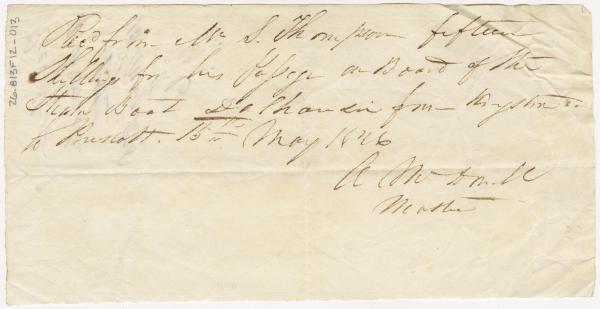 Recd from Mr S. Thompson fifteen
Shillings for his Passage on Board of the
Steam Boat Dalhousie from Kingston
to Prescott. 15th May 1826
A McDonell
Master
26-813F12-013